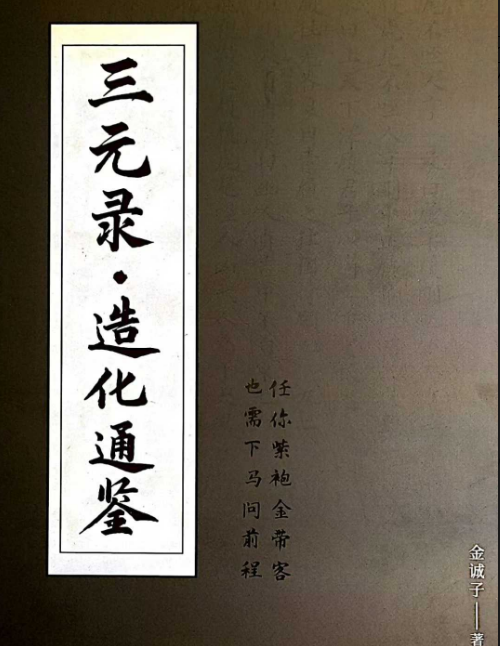 三元录·造化通鉴
任你紫袍金带客
也需下马问前程
金诚子——著